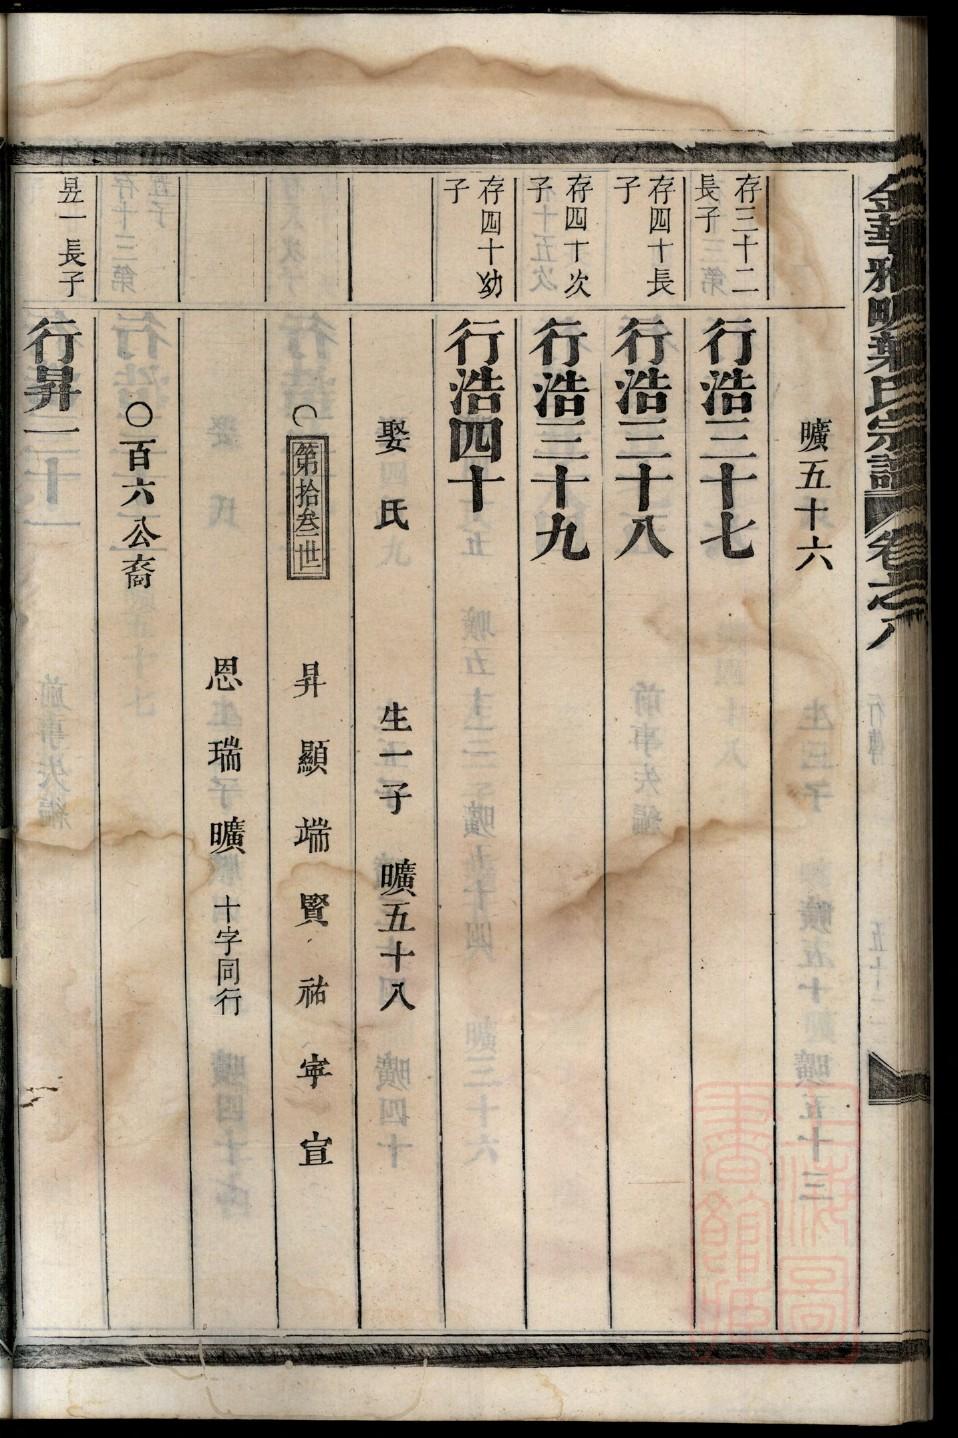 金華雅畈葉氏宗譜 卷之八
曠五十六
存三十二長子
行浩三十七
存四十長子
行浩三十八
存四十次子
行浩三十九
存四十幼子
行浩四十
娶 氏 生一子 曠五十八
第拾叁世 昇 顯 端 賢 祐 寧 宣
恩 瑞 曠 十字同行
百六公裔
昱一長子
行昇一